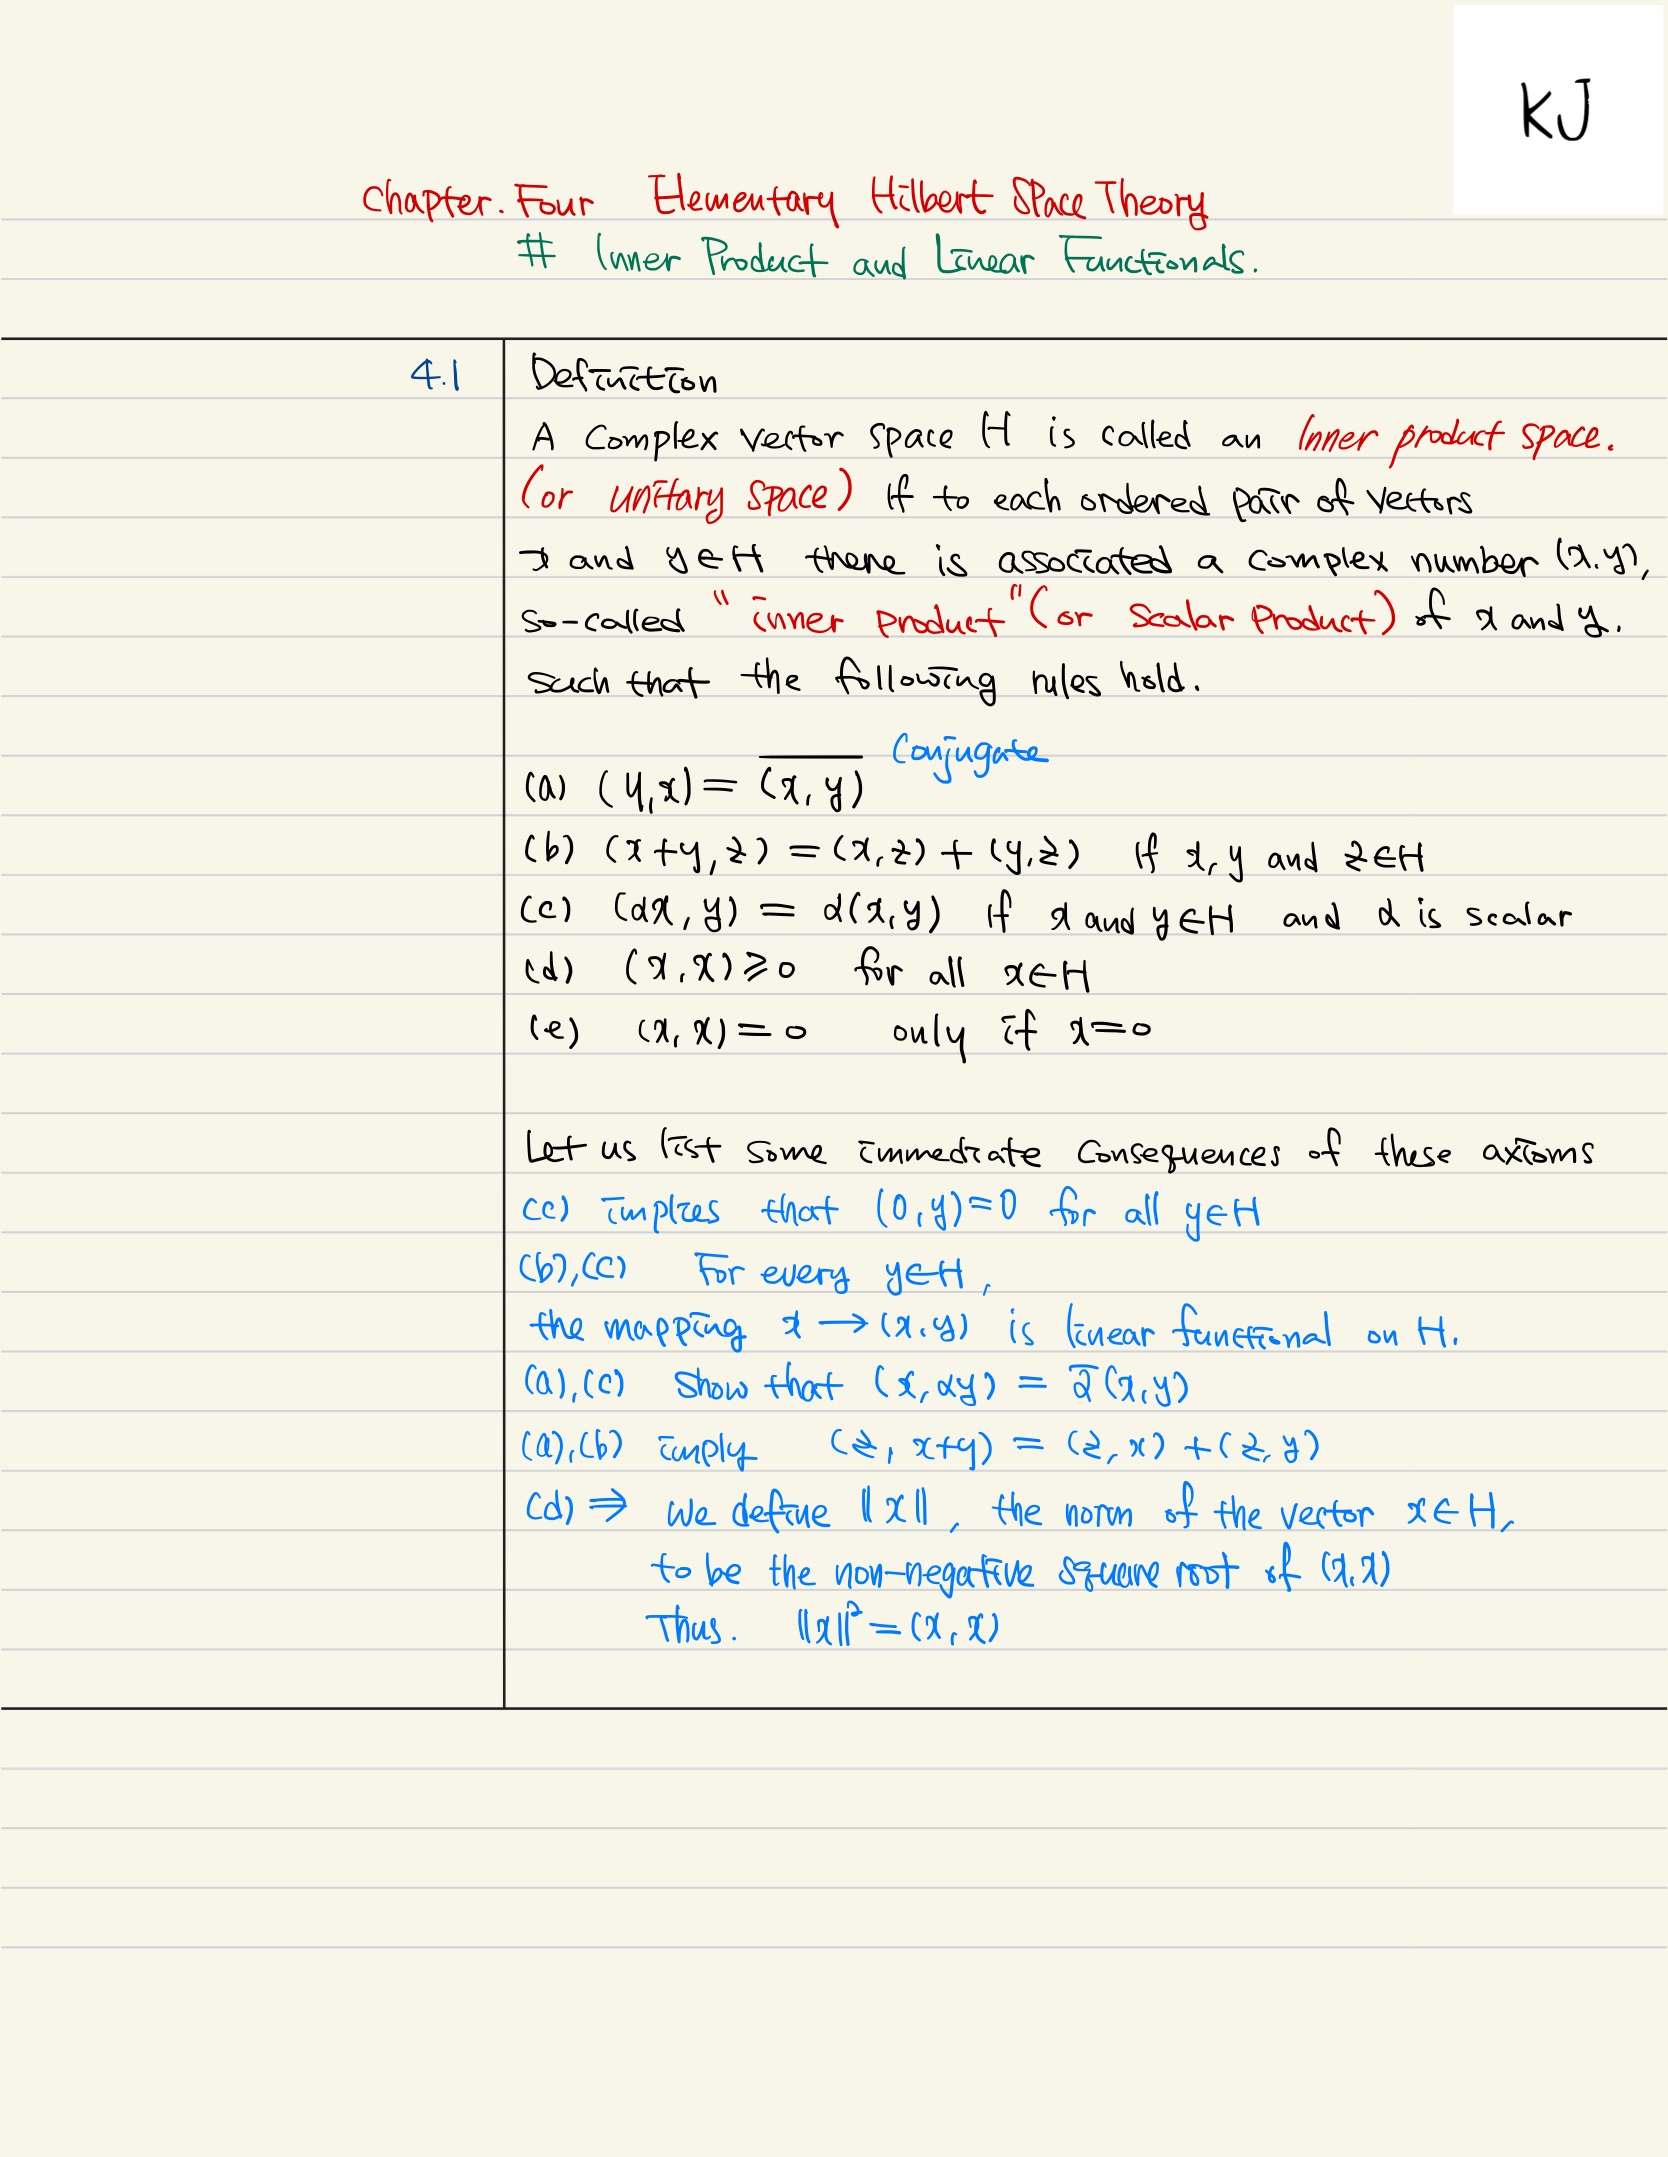 KJ
Chapter. Four Elementary Hilbert Space Theory
# Inner Product and Linear Functionals.
4.1
Definition
A Complex vector space H is called an Inner product space.
(or unitary space) if to each ordered pair of vectors
x and y∈H there is associated a complex number (x.y),
so-called "inner product" (or Scalar Product) of x and y.
such that the following rules hold.
Conjugate
(a) (y,x) = \overline{(x,y)}
(b) (x+y,z) = (x,z) + (y,z) if x,y and z∈H
(c) (αx,y) = α(x,y) if x and y∈H and α is scalar
(d) (x,x)≥0 for all x∈H
(e) (x,x)=0 only if x=0
Let us list some immediate Consequences of these axioms
(c) implies that (0,y)=0 for all y∈H
(b),(c) For every y∈H,
the mapping x→(x,y) is linear functional on H.
(a),(c) show that (x,αy) = \overline{α}(x,y)
(a),(b) imply (z,x+y) = (z,x) + (z,y)
(d) ⇒ we define ||x||, the norm of the vector x∈H,
to be the non-negative square root of (x,x)
Thus. ||x||² = (x,x)